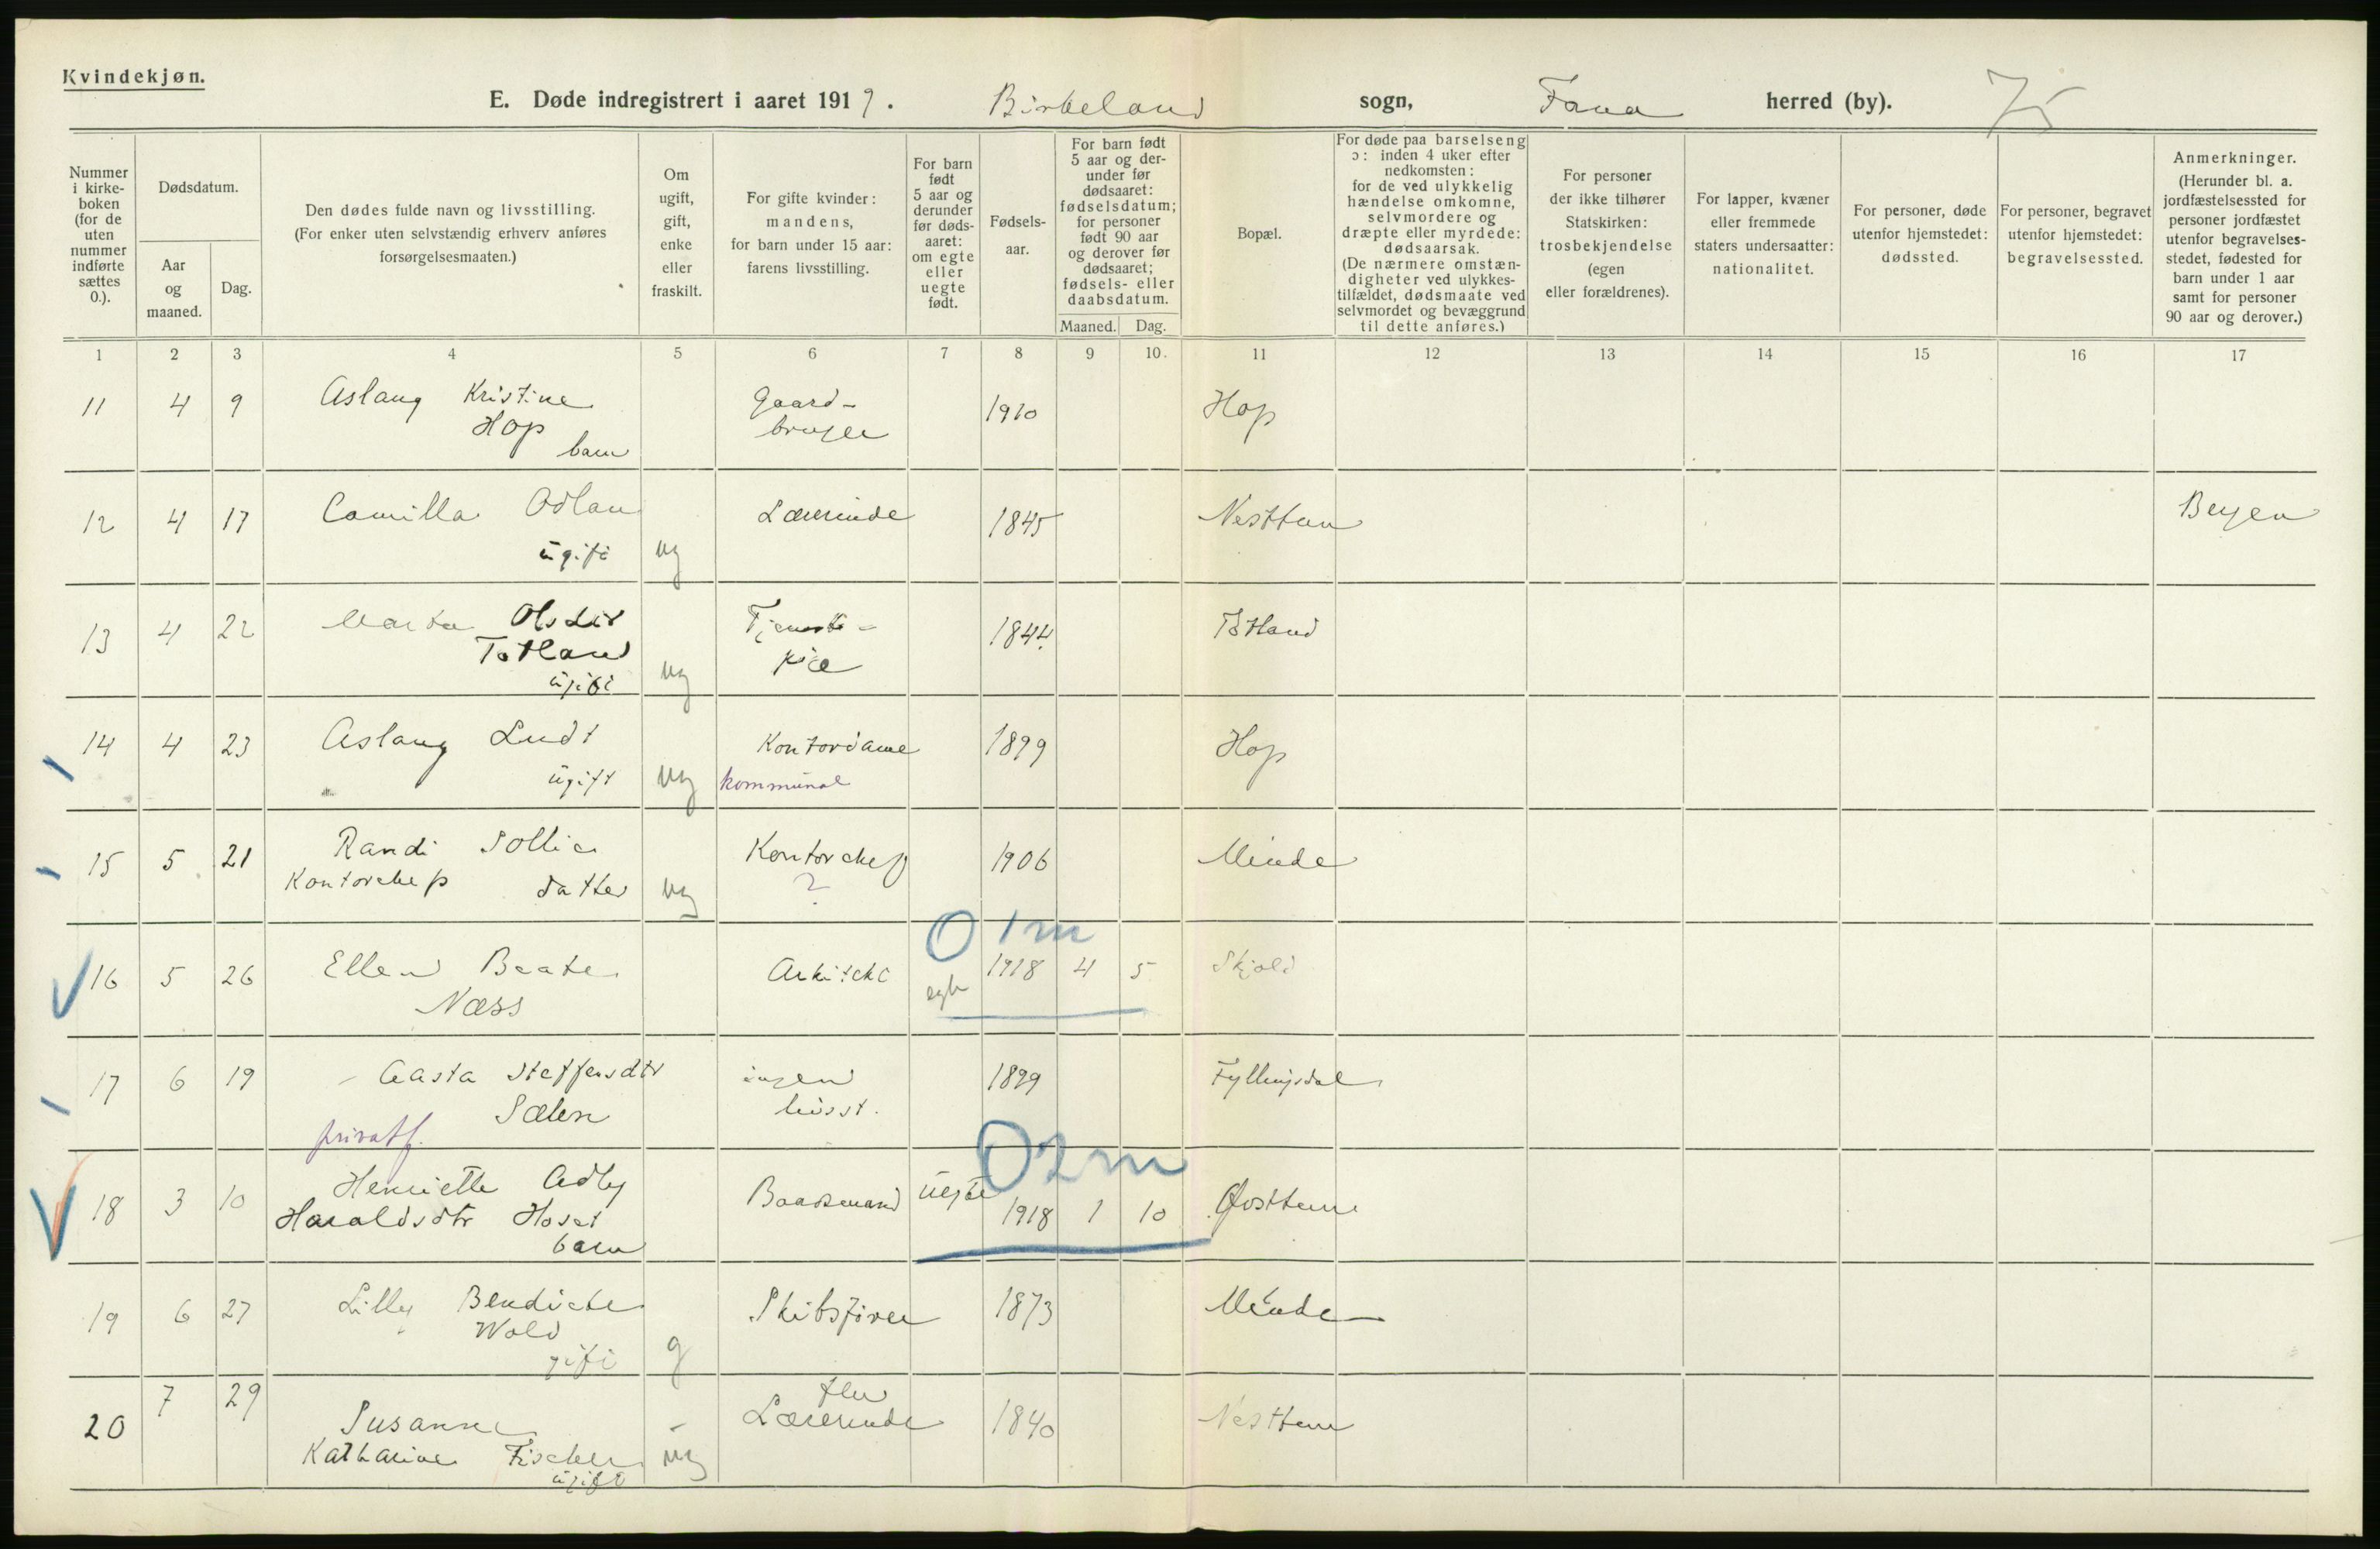 Kvindekjøn.
E. Døde indregistrert i aaret 1919. Birkeland sogn, Fana herred (by). 75
Nummer i kirkeboken (for de uten nummer indførte sættes 0.).
Dødsdatum.
Aar og maaned.
Dag.
Den dødes fulde navn og livsstilling. (For enker uten selvstændig erhverv anføres forsørgelsesmaaten.)
Om ugift, gift, enke eller fraskilt.
For gifte kvinder: mandens, for barn under 15 aar: farens livsstilling.
For barn født 5 aar og derunder før dødsaaret: om egte eller uegte født.
Fødselsaar.
For barn født 5 aar og derunder før dødsaaret: fødselsdatum; for personer født 90 aar og derover før dødsaaret; fødsels- eller daabsdatum.
Maaned. Dag.
Bopæl.
For døde paa barselseng ɔ: inden 4 uker efter nedkomsten: for de ved ulykkelig hændelse omkomne, selvmordere og dræpte eller myrdede: dødsaarsak. (De nærmere omstændigheter ved ulykkestilfældet, dødsmaate ved selvmordet og bevæggrund til dette anføres.)
For personer der ikke tilhører Statskirken: trosbekjendelse (egen eller forældrenes).
For lapper, kvæner eller fremmede staters undersaatter: nationalitet.
For personer, døde utenfor hjemstedet: dødssted.
For personer, begravet utenfor hjemstedet: begravelsessted.
Anmerkninger. (Herunder bl. a. jordfæstelsessted for personer jordfæstet utenfor begravelsesstedet, fødested for barn under 1 aar samt for personer 90 aar og derover.)
1 2 3 4 5 6 7 8 9 10. 11 12 13 14 15 16 17
11 4 9 Aslaug Kristine Gaard- 1910 Hop
Hop bruger
barn
12 4 17 Camilla Odland Lærerinde 1845 Nesttun Bergen
ugift ug
13 4 22 Marta Olsdtr Tjeneste- 1844. Totland
Totland pige
ugift ug
14 4 23 Aslaug Lindt Kontordame 1899 Hop
ugift ug kommunal
15 5 21 Randi Sollie Kontorchef 1906 Minde
Kontorchefs datter ug ?
0 1m
16 5 26 Ellen Beate Arkitekt egte 1918 4 5 Skjold
Næss
17 6 19 Aasta Steffensdtr ingen 1899 Fyllingsdal
Sælen livsst.
privat f.
0 2m
18 3 10 Henriette Adly Baadsmand uegte 1918 1 10
Haraldsdtr
barn
19 6 27 Lilly Bendicte Skibsfører 1873 Minde
Wold
gift g
20 7 29 Susanne Lærerinde 1840 Nesttun
Katharine Fischer
ugift ug